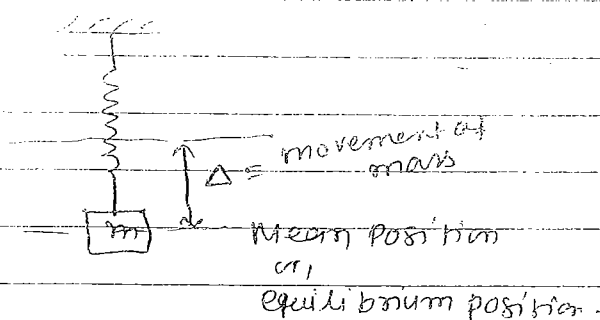 Δ = movement of
mass
m
Mean Position
or,
equilibrium position.